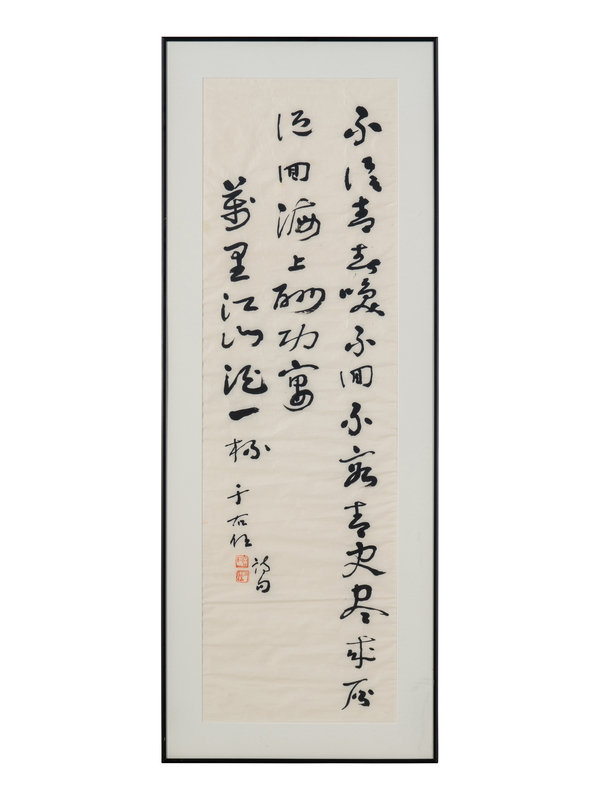 不信青春喚不回不容青史盡成灰
低回海上酬功宴
萬里江山酒一杯
于右任
詩句